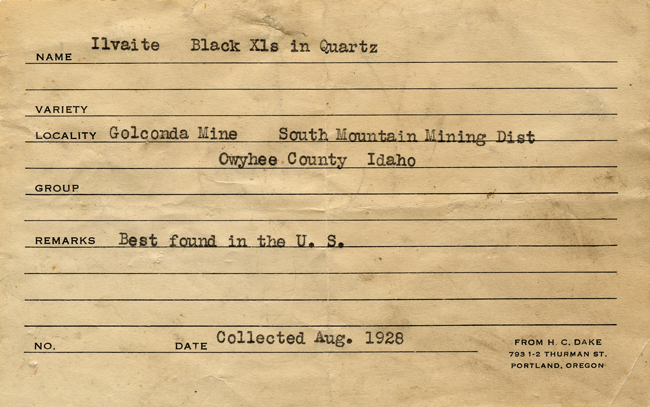 NAME Ilvaite Black Xls in Quartz
VARIETY
LOCALITY Golconda Mine South Mountain Mining Dist
Owyhee County Idaho
GROUP
REMARKS Best found in the U. S.
NO. DATE Collected Aug. 1928
FROM H. C. DAKE
793 1-2 THURMAN ST.
PORTLAND, OREGON